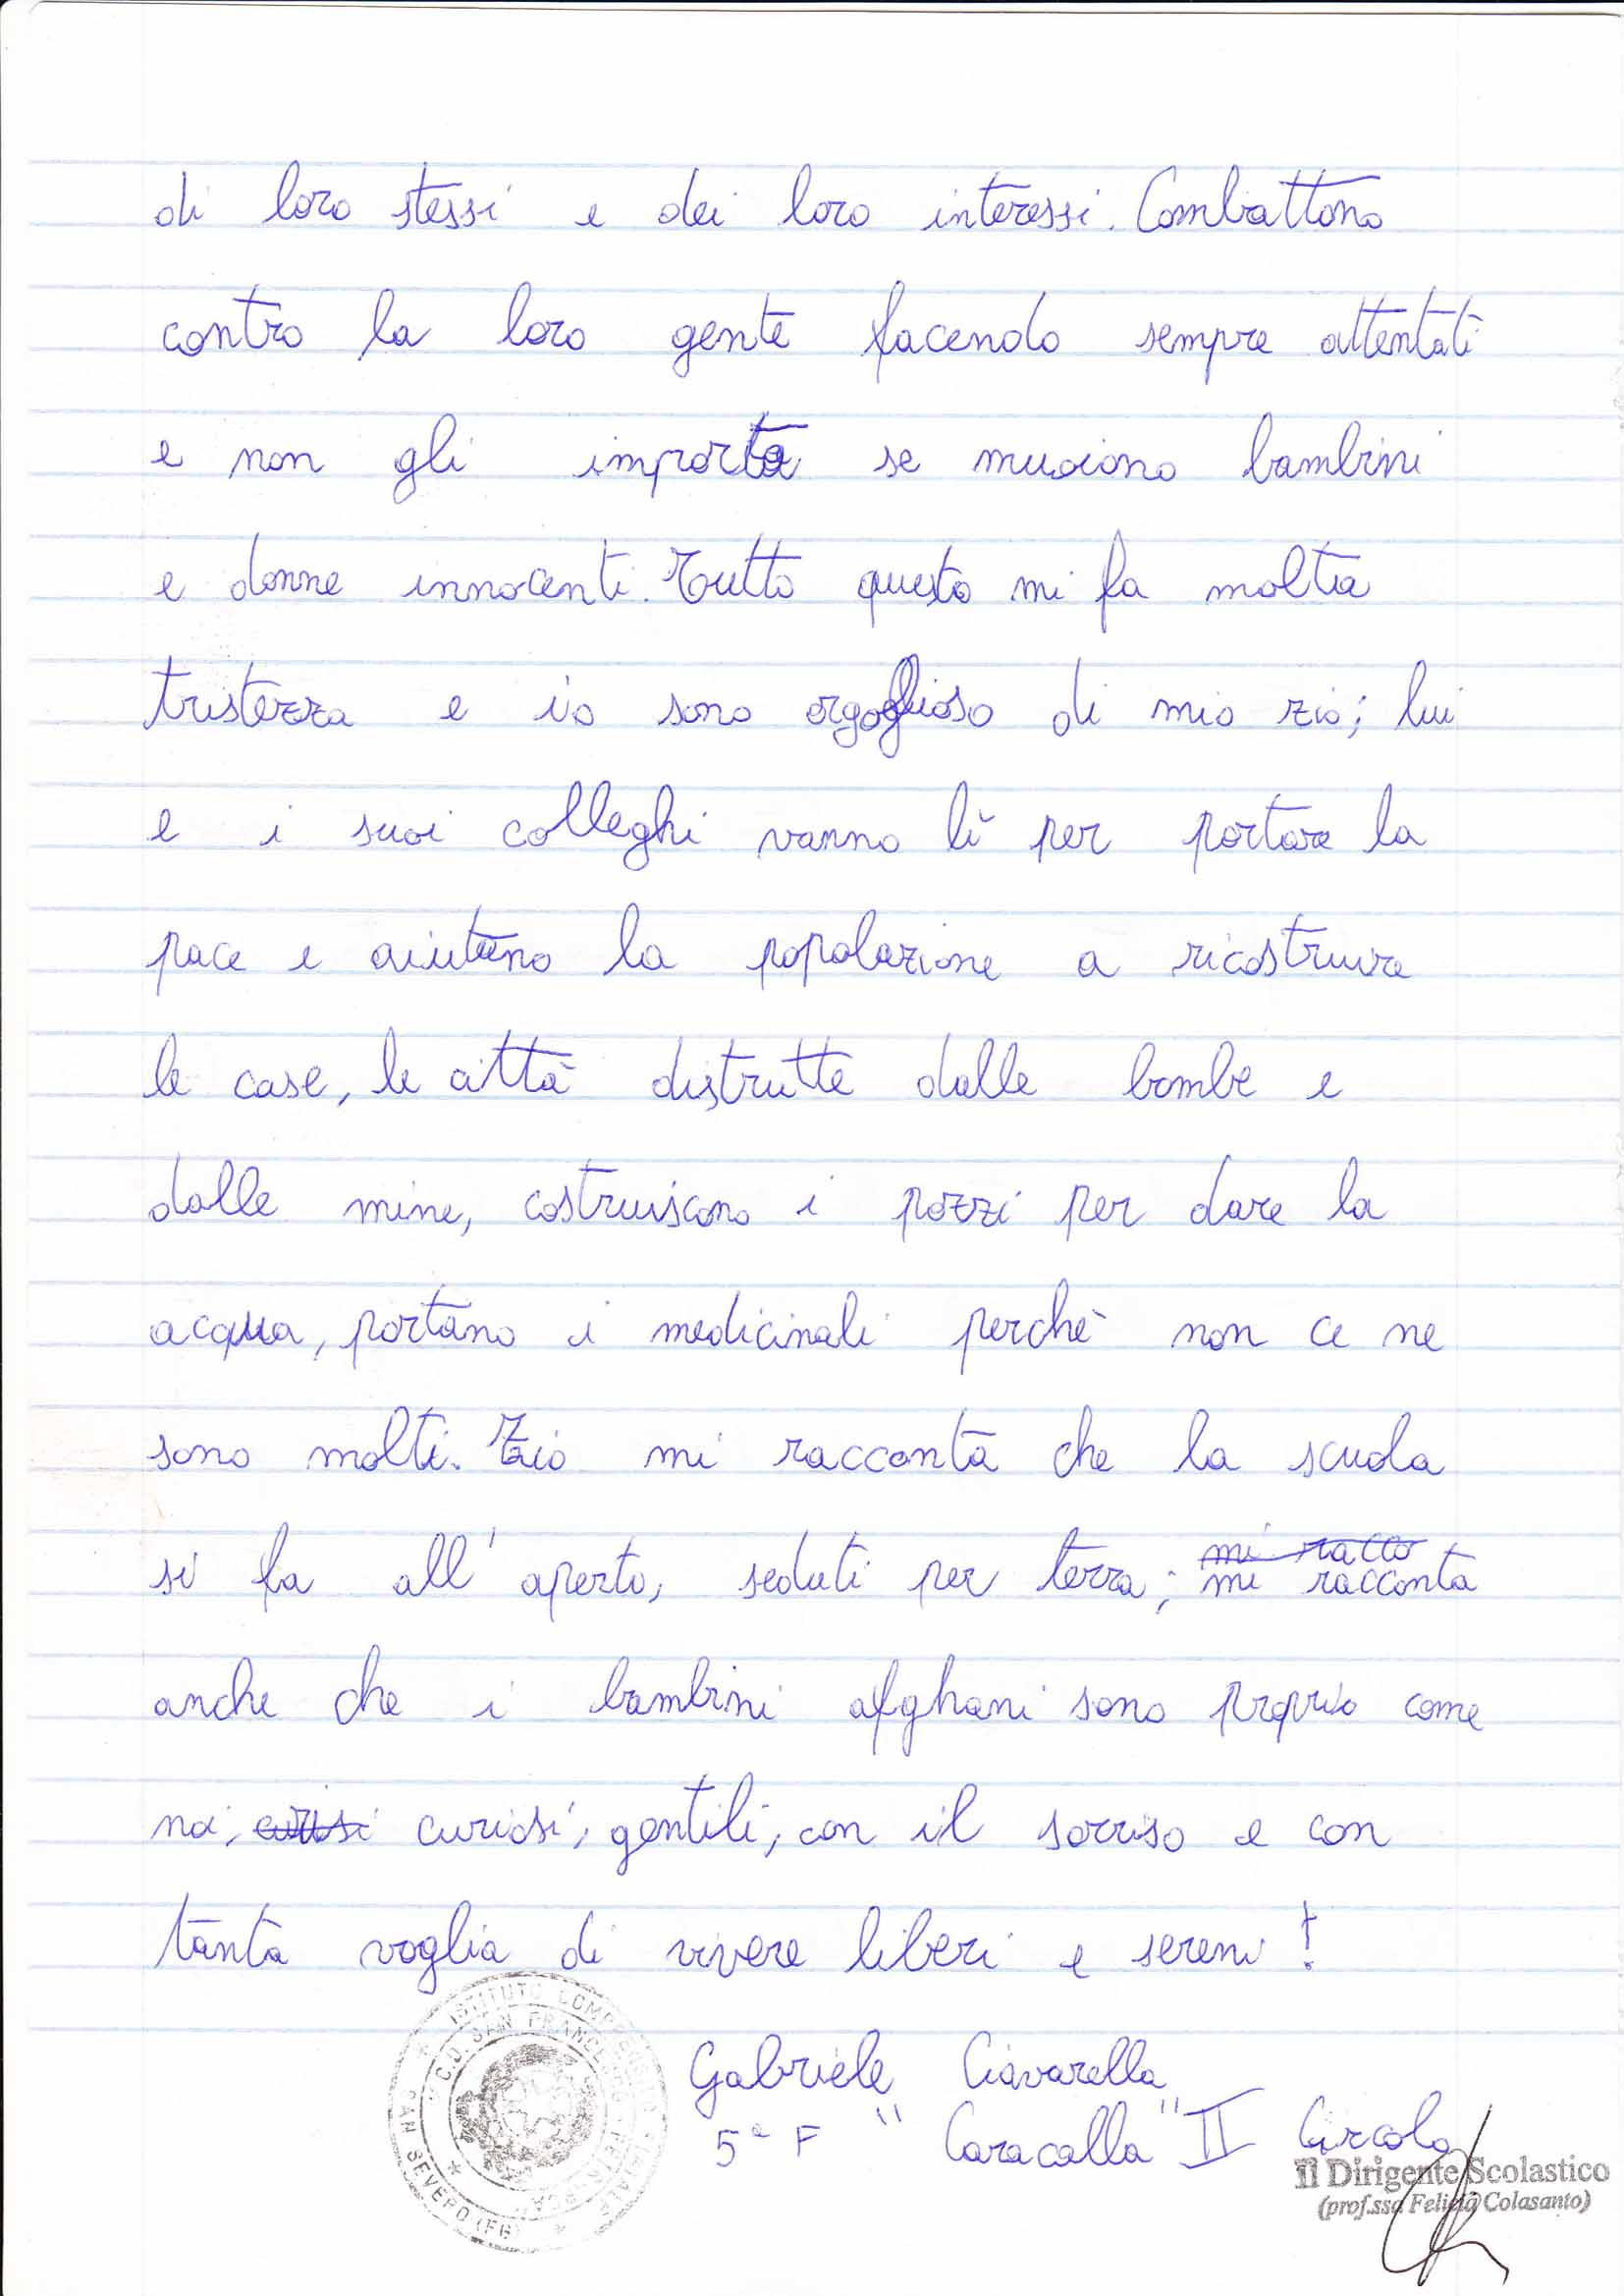 di loro stessi e dei loro interessi. Combattono
contro la loro gente facendo sempre attentati
e non gli importa se muoiono bambini
e donne innocenti. Tutto questo mi fa molta
tristezza e io sono orgoglioso di mio zio; lui
e i suoi colleghi vanno lì per portare la
pace e aiutano la popolazione a ricostruire
le case, le città distrutte dalle bombe e
dalle mine, costruiscono i pozzi per dare la
acqua, portano i medicinali perchè non ce ne
sono molti. Zio mi racconta che la scuola
mi racco
si fa all'aperto, seduti per terra; mi racconta
anche che i bambini afghani sono proprio come
noi, curiosi, gentili, con il sorriso e con
tanta voglia di vivere liberi e sereni!
ISTITUTO COMPRENSIVO STATALE
C.D. SAN FRANCESCO - PETRARCA
SAN SEVERO (FG)
Gabriele Ciavarella
5ª F "Caracalla" II Circolo
Il Dirigente Scolastico
(prof.ssa Felicia Colasanto)